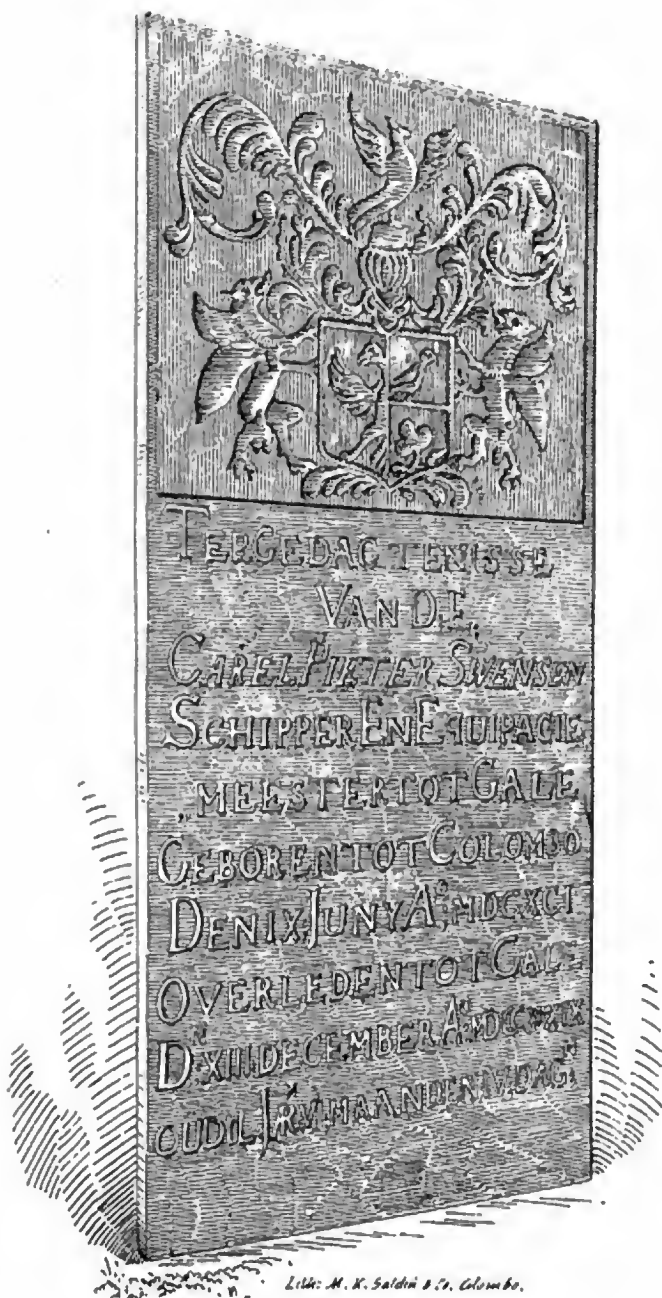 TER GEDACTENISSE
VAN D E.
CAREL PIETER SWENSEN
SCHIPPER EN EQUIPAGIE
MEESTER TOT GALE
GEBOREN TOT COLOMBO
DEN IX JUNY A°: MDCXCI
OVERLEDEN TOT GAL
D.N XIII DECEMBER A°
OUD JR V MAANDEN IV DAG
Lith: M. K. & Co, Colombo.